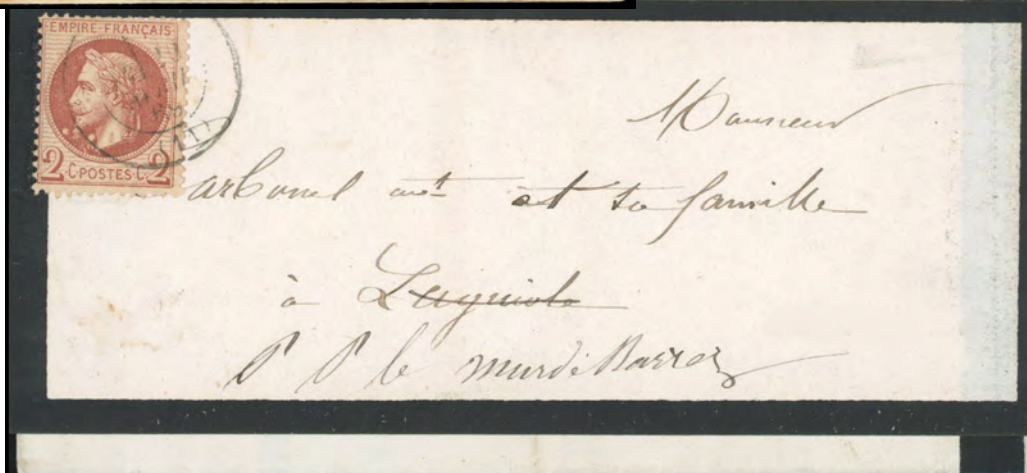 EMPIRE·FRANÇAIS
2·C·POSTES·C·2
(11)
Monsieur
Carbonel et sa famille
à Laguiole
P P le mur de Barrez